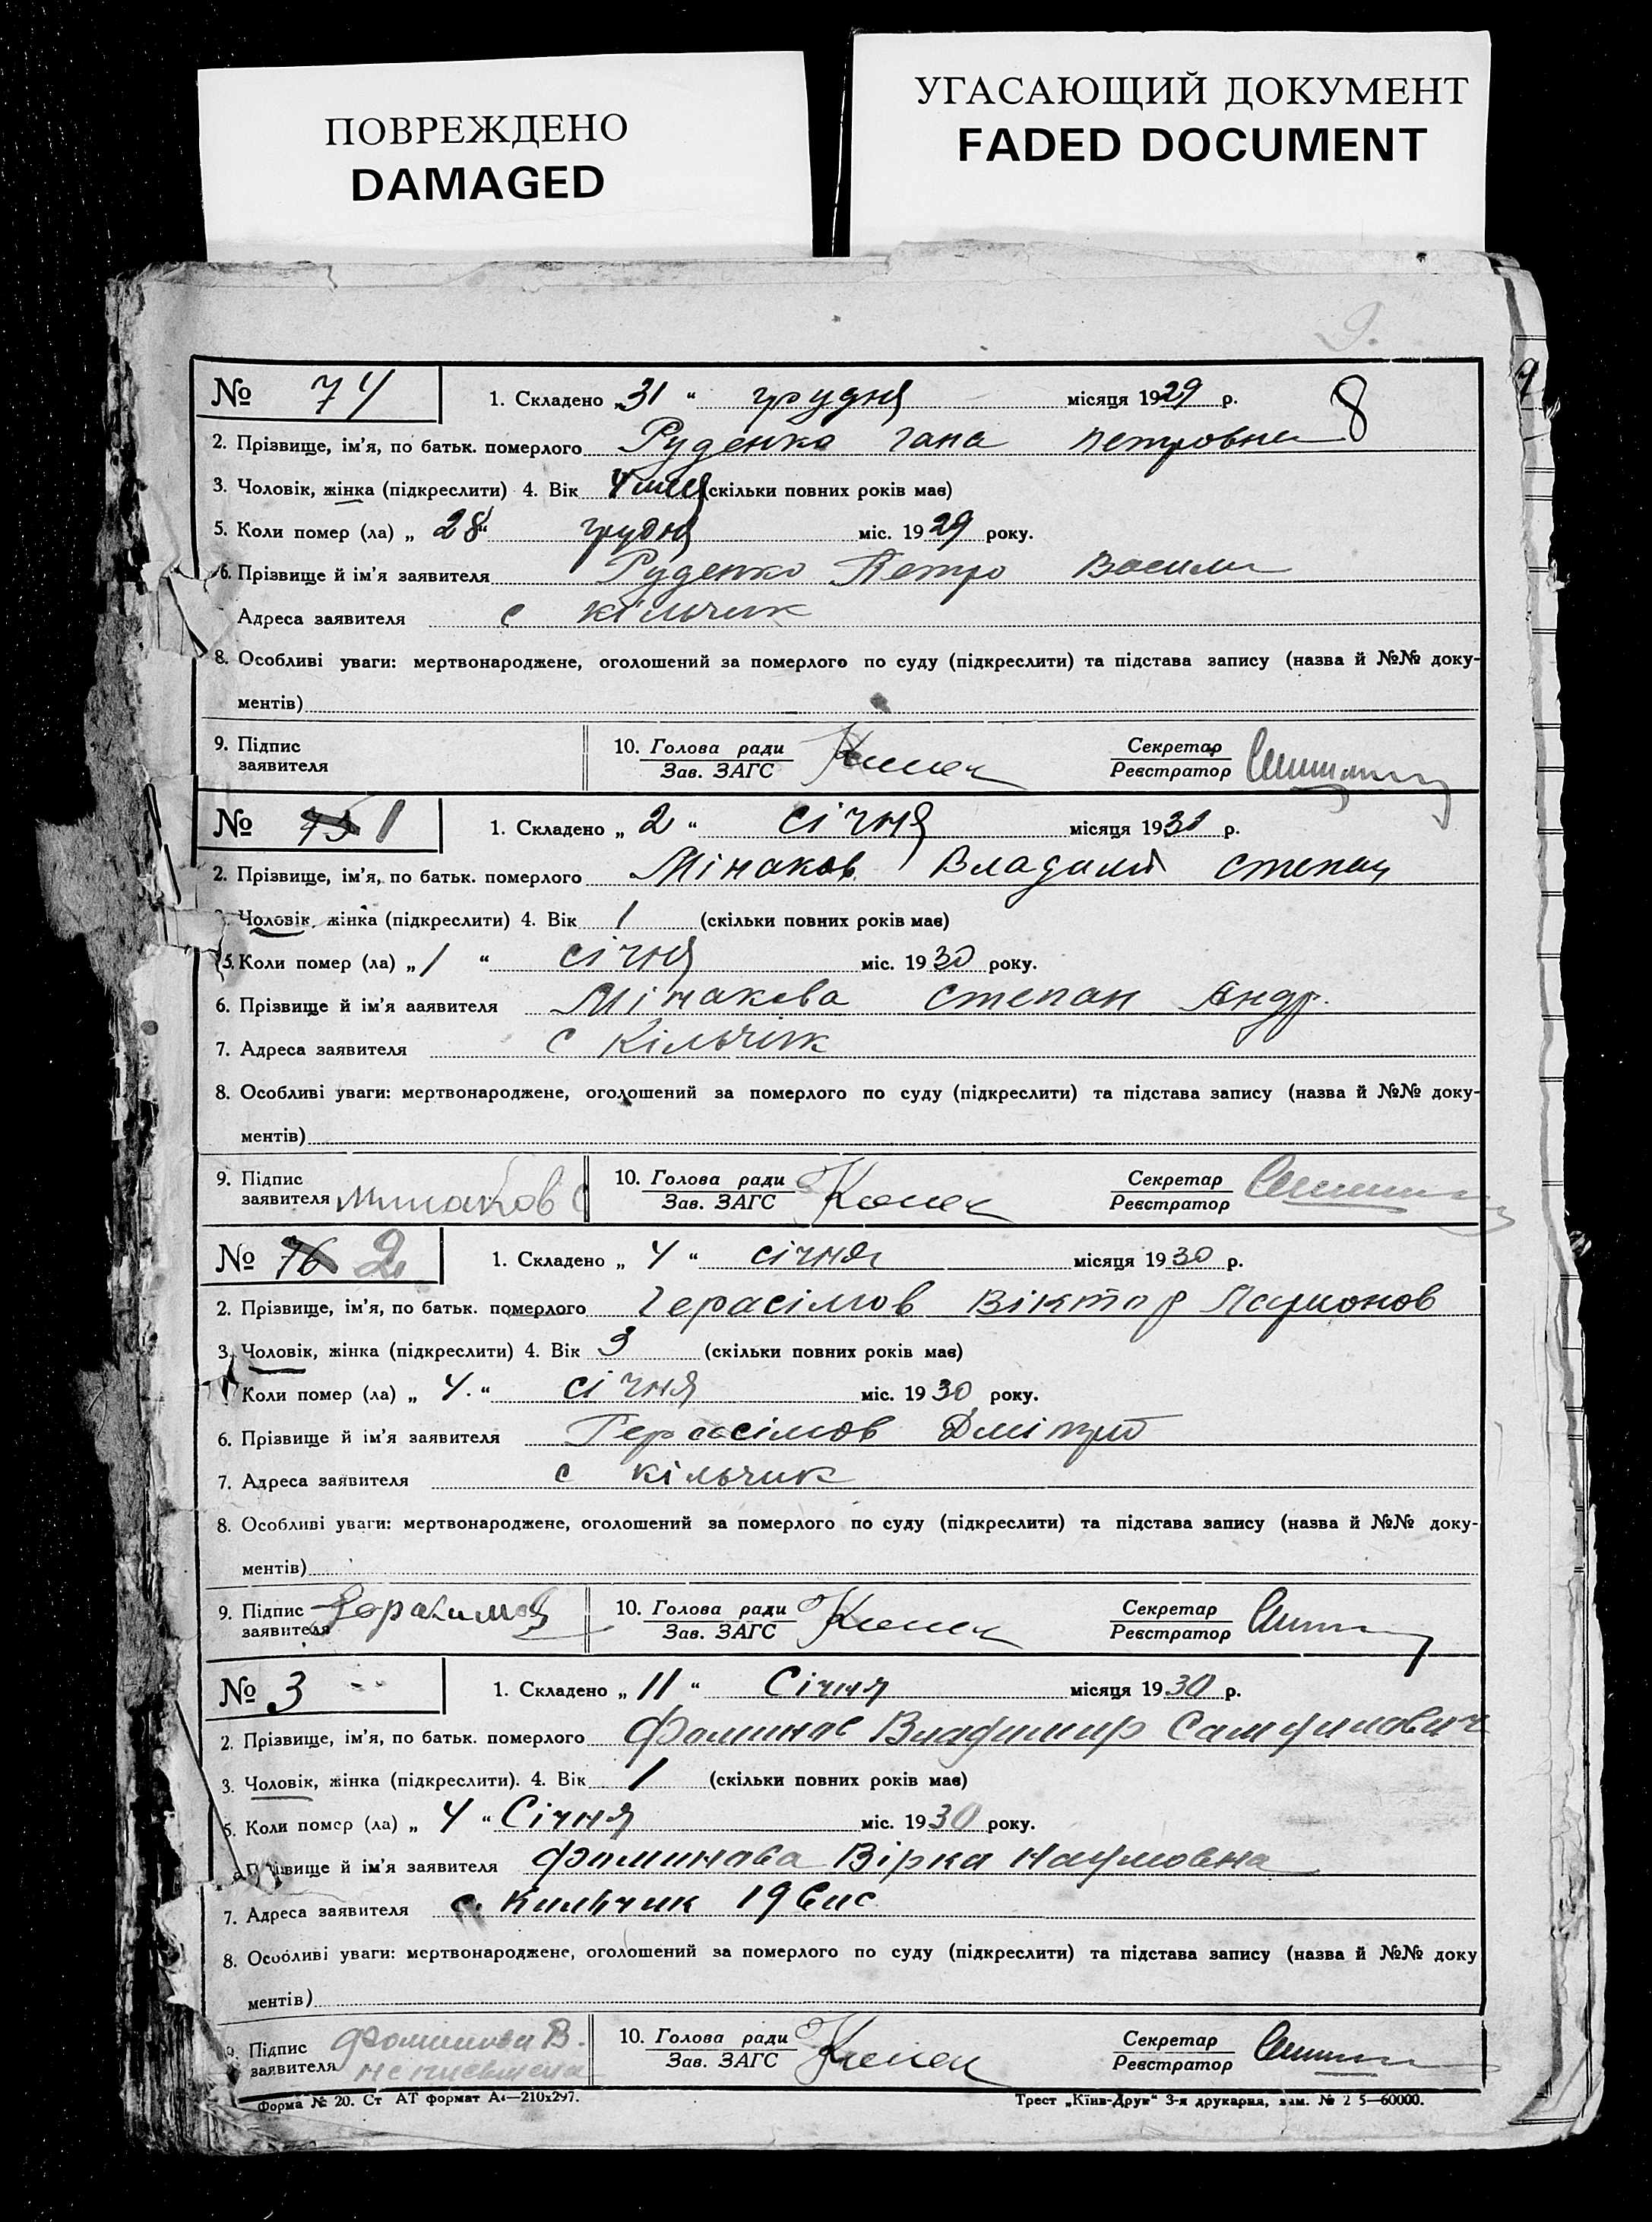 ПОВРЕЖДЕНО
DAMAGED
УГАСАЮЩИЙ ДОКУМЕНТ
FADED DOCUMENT
9.
№ 74 1. Складено „31“ грудня місяця 1929 р. 8
2. Прізвище, ім'я, по батьк. померлого Руденко Гапа Петровна
3. Чоловік, жінка (підкреслити) 4. Вік 4 (скільки повних років має)
5. Коли помер (ла) „28“ грудня міс. 1929 року.
6. Прізвище й ім'я заявителя Руденко Петро Васили
Адреса заявителя с кільчик
8. Особливі уваги: мертвонароджене, оголошений за померлого по суду (підкреслити) та підстава запису (назва й №№ доку-
ментів)
9. Підпис заявителя 10. Голова ради Зав. ЗАГС Секретар Реєстратор
№ 75 1 1. Складено „2“ січня місяця 1930 р.
2. Прізвище, ім'я, по батьк. померлого Мінаков Владимі степан
3. Чоловік, жінка (підкреслити) 4. Вік 1 (скільки повних років має)
5. Коли помер (ла) „1“ січня міс. 1930 року.
6. Прізвище й ім'я ааявителя Мінакова степан Андр.
7. Адреса заявителя с Кільчик
8. Особливі уваги: мертвонароджене, оголошений за померлого по суду (підкреслити) та підстава запису (назва й №№ доку-
ментів)
9. Підпис заявителя Минаков С 10. Голова ради Зав. ЗАГС Секретар Реєстратор
№ 76 2 1. Складено „4“ січня місяця 1930 р.
2. Прізвище, ім'я, по батьк. померлого Герасімов Віктор
3. Чоловік, жінка (підкреслити) 4. Вік 3 (скільки повних років має)
Коли помер (ла) „4.“ січня міс. 1930 року.
6. Прізвище й ім'я заявителя Герасімов Дмітрий
7. Адреса заявителя с кільчик
8. Особливі уваги: мертвонароджене, оголошений за померлого по суду (підкреслити) та підстава запису (назва й №№ доку-
ментів)
9. Підпис заявителя Герасимов 10. Голова ради Зав. ЗАГС Секретар Реєстратор
№ 3 1. Складено „11“ Січня місяця 1930 р.
2. Прізвище, ім'я, по батьк. померлого Фоминов Владимир Самуилович
3. Чоловік, жінка (підкреслити). 4. Вік 1 (скільки повних років має)
5. Коли помер (ла) „4“ Січня міс. 1930 року.
Прізвище й ім'я заявителя Фоминова Вірка Наумовна
7. Адреса заявителя с. Кильчик
8. Особливі уваги: мертвонароджене, оголошений за померлого по суду (підкреслити) та підстава запису (назва й №№ доку
ментів)
9. Підпис заявителя Фоминова В. 10. Голова ради Зав. ЗАГС Секретар Реєстратор
Форма № 20. Ст АТ формат А4—210х297. Трест „Київ-Друк“ 3-я друкарня, зам. № 2 5—60000.